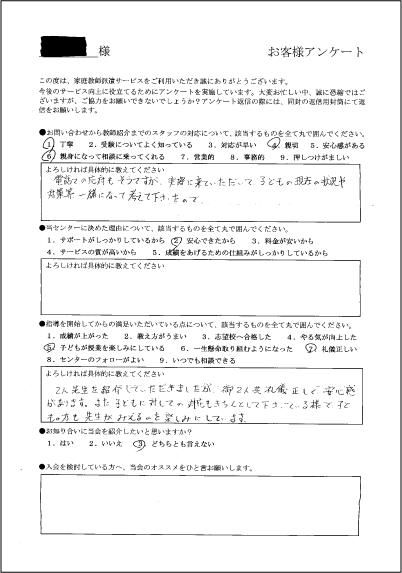 様
お客様アンケート
この度は、家庭教師派遣サービスをご利用いただき誠にありがとうございます。
今後のサービス向上に役立てるためにアンケートを実施しています。大変お忙しい中、誠に恐縮ではご
ざいますが、ご協力をお願いできないでしょうか？アンケート返信の際には、同封の返信用封筒にて返
信をお願いします。
●お問い合わせから教師紹介までのスタッフの対応について、該当するものを全て丸で囲んでください。
1．丁寧 2．受験についてよく知っている 3．対応が早い 4．親切 5．安心感がある
6．親身になって相談に乗ってくれる 7．営業的 8．事務的 9．押しつけがましい
よろしければ具体的に教えてください
電話での応対もそうですが、実際に来ていただいて、子どもの現在の状況や
対策等一緒になって考えて下さったので。
●当センターに決めた理由について、該当するものを全て丸で囲んでください。
1．サポートがしっかりしているから 2．安心できたから 3．料金が安いから
4．サービスの質が高いから 5．成績をあげるための仕組みがしっかりしているから
よろしければ具体的に教えてください
●指導を開始してからの満足いただいている点について、該当するものを全て丸で囲んでください。
1．成績が上がった 2．教え方がうまい 3．志望校へ合格した 4．やる気が向上した
5．子どもが授業を楽しみにしている 6．一生懸命取り組むようになった 7．礼儀正しい
8．センターのフォローがよい 9．いつでも相談できる
よろしければ具体的に教えてください
2人先生を紹介していただきましたが、御2人共礼儀正しく安心感
があります。また子どもに対しての対応もきちんとして下さっている様で、子ど
もの方も先生がみえるのを楽しみにしています。
●お知り合いに当会を紹介したいと思いますか？
1．はい 2．いいえ 3．どちらとも言えない
●入会を検討している方へ、当会のオススメをひと言お願いします。